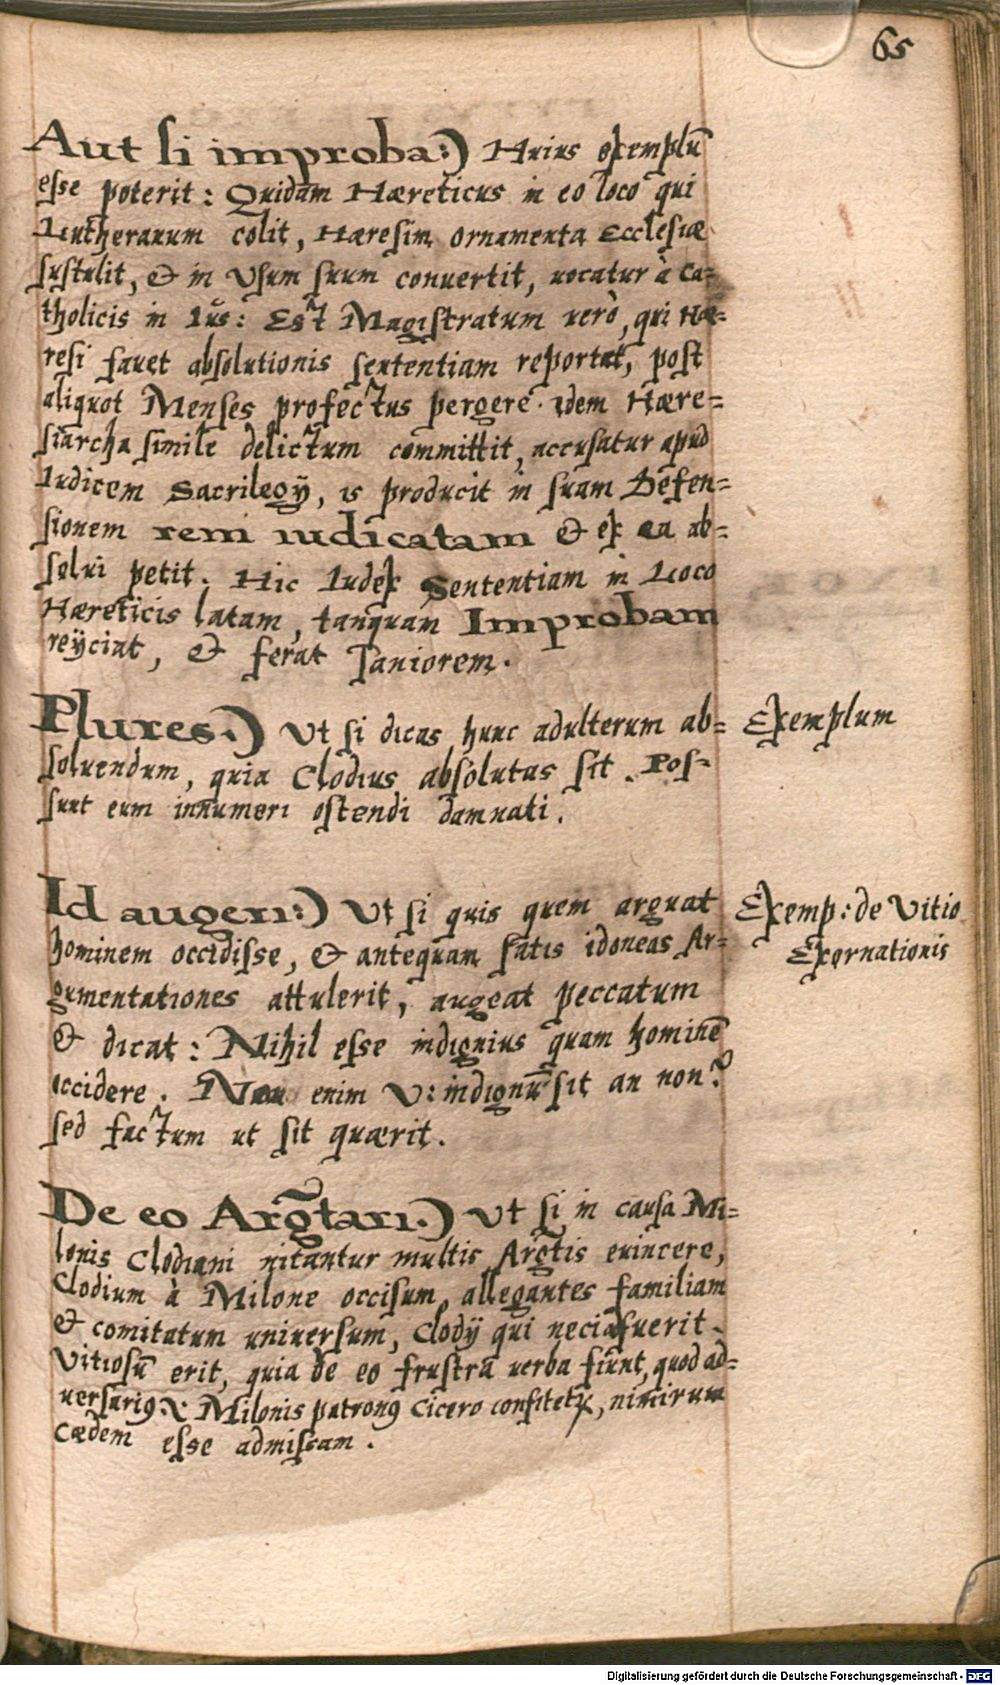 65
Aut si improba:) Huius exemplū
esse poterit: Quidam Hæreticus in eo loco qui
Lutheranum colit, Hæresim, ornamenta Ecclesiæ
sustulit, & in Usum suum conuertit, uocatur à Ca=
tholicis in Ius: Est Magistratum uerò, qui Hæ=
resi fauet absolutionis sententiam reportat, post
aliquot Menses profectus pergere. idem Hære=
siarcha simile delictum committit, accusatur apud
Iudicem Sacrilegij, is producit in suam Defen=
sionem rem iudicatam & ex ea ab=
solui petit. Hic Iudex Sententiam in Loco
Hæreticis latam, tanquam Improbam
reijciat, & ferat Saniorem.
Plures.) Ut si dicas hunc adulterum ab=
soluendum, quia Clodius absolutus sit. Pos=
sunt eum innumeri ostendi damnati.
Exemplum
Id augeri:) Ut si quis quem arguat
hominem occidisse, & antequam satis idoneas Ar=
gumentationes attulerit, augeat peccatum
& dicat: Nihil esse indignius quam hominē
occidere. Non enim U: indignū sit an non?
sed factum ut sit quærit.
Exemp: de Vitio
Exornationis
De eo Argtari.) Ut si in causa Mi=
lonis Clodiani nitantur multis Argtis euincere,
Clodium à Milone occisum, allegantes familiam
& comitatum uniuersum, Clodij qui fuerit.
Vitiosū erit, quia de eo frustra uerba fiunt, quod ad=
uersarig & Milonis patrong Cicero confitetr, nimirum
Cædem esse admissam.
Digitalisierung gefördert durch die Deutsche Forschungsgemeinschaft - DFG